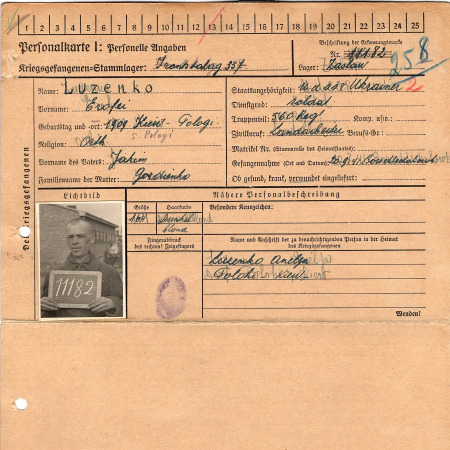 1 2 3 4 5 6 7 8 9 10 11 12 13 14 15 16 17 18 19 20 21 22 23 24 25
Personalkarte I: Personelle Angaben
Kriegsgefangenen-Stammlager: Frontstalag 357
Beschriftung der Erkennungsmarke
Nr. 11182
Lager: Zaslau
258
Des Kriegsgefangenen
Name: LUZENKO
Vorname: Erofei
Geburtstag und -ort: 1909 Kiew - Pologi
S. Pologi
Religion: Orth.
Vorname des Vaters: Jakim
Familienname der Mutter: Gordienko
Staatsangehörigkeit: Ukrainer
Dienstgrad: soldat
Truppenteil: 560 Reg. Komp. usw.:
Zivilberuf: Landarbeiter Berufs-Gr.:
Matrikel Nr. (Stammrolle des Heimatstaates):
Gefangennahme (Ort und Datum):
Ob gesund, krank, verwundet eingeliefert:
Lichtbild
Nähere Personalbeschreibung
Größe
Haarfarbe
Besondere Kennzeichen:
blond
Fingerabdruck
des rechten Zeigefingers
Name und Anschrift der zu benachrichtigenden Person in der Heimat
des Kriegsgefangenen
11182
Luzenko
Kiew
Wenden!